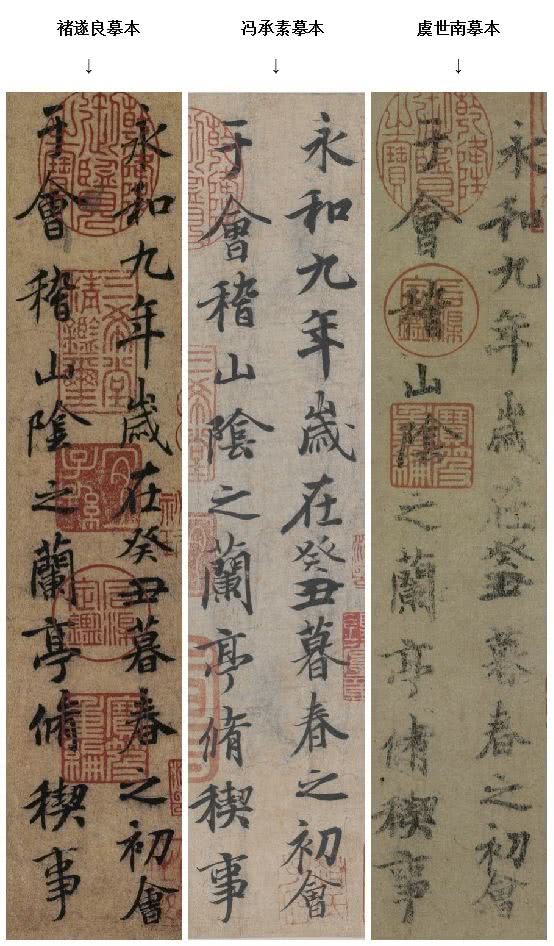 褚遂良墓本
冯承素墓本
虞世南墓本
永和九年歲在癸丑暮春之初會
于會稽山陰之蘭亭脩稧事
永和九年歲在癸丑暮春之初會
于會稽山陰之蘭亭脩稧事
永和九年歲在癸丑暮春之初會
于會稽山陰之蘭亭脩稧事